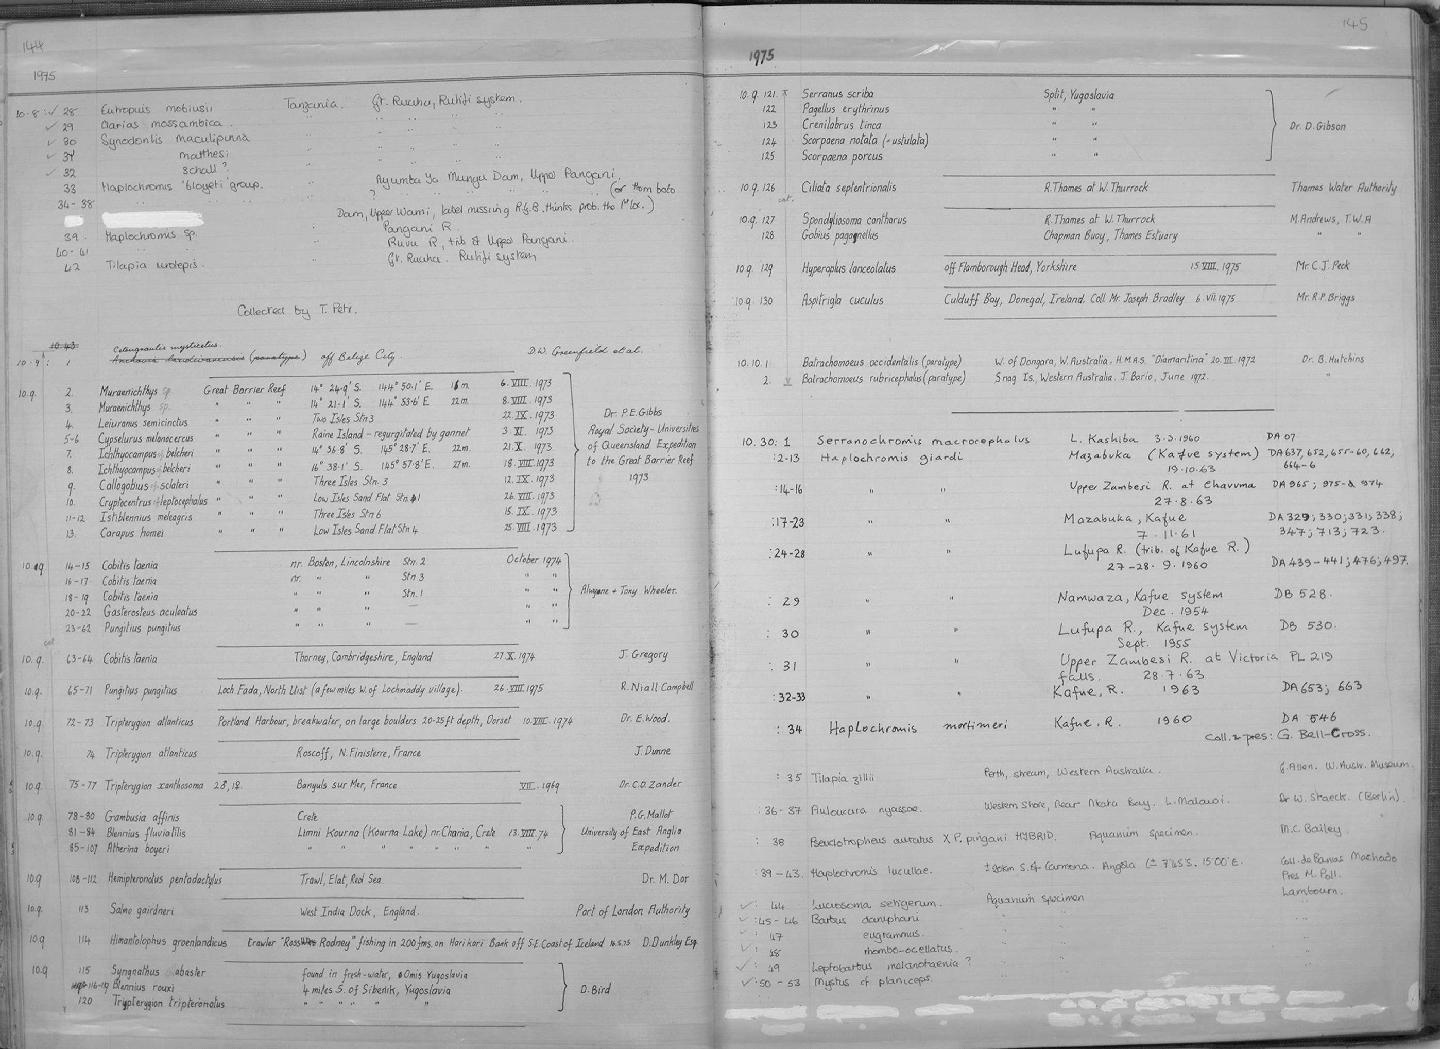 144
1975
10·8: ✓ 28 Eutropius mobiusii Tanzania. Gt. Ruaha, Rufiji system.
✓ 29 Clarias mossambica " " " "
✓ 30 Synodontis maculipinna " " " "
✓ 31 matthesi " " " "
✓ 32 schall? " " " "
33 Haplochromis 'bloyeti' group. " Nyumba Ya Mungu Dam, Upper Pangani.
34-38 " " " " ? " " " " (or Hombolo
Dam, Upper Wami, label missing R.G.B. thinks prob. the Nloc.)
39. Haplochromis sp. " Pangani R.
40-41 " Ruvu R, trib of Upper Pangani.
42 Tilapia urolepis. " Gt. Ruaha. Rufiji system
Collected by T. Petr.
10.43
Cetengraulis mysticetus
10·9: 1 (paratype) off Belize City. D.W. Greenfield et al.
10.9. 2. Muraenichthys sp. Great Barrier Reef 14° 24·9' S. 144° 50·1' E. 16m. 6.VIII.1973
3. Muraenichthys sp. " " " 14° 21·1' S. 144° 53·6' E 22m. 8.VIII.1973
4. Leiuranus semicinctus " " " Two Isles Stn 3 22.IX.1973
5-6 Cypselurus melanocercus " " " Raine Island - regurgitated by gannet 3.XI.1973
7. Ichthyocampus belcheri " " " 14° 36·8' S. 145° 28·7' E. 22m. 21.X.1973
8. Ichthyocampus belcheri " " " 16° 38·1' S. 145° 57·8' E. 27m. 18.VIII.1973
9. Callogobius sclateri " " " Three Isles Stn. 3 12.IX.1973
10. Cryptocentrus leptocephalus " " " Low Isles Sand Flat Stn. 1 26.VIII.1973
11-12 Istiblennius meleagris " " " Three Isles Stn 6 15.IX.1973
13. Carapus homei " " " Low Isles Sand Flat Stn 4 25.VIII.1973
Dr. P.E. Gibbs
Royal Society - Universities
of Queensland Expedition
to the Great Barrier Reef
1973
10.9 14-15 Cobitis taenia nr. Boston, Lincolnshire Stn. 2 October 1974
16-17 Cobitis taenia nr. " " Stn 3 " "
18-19 Cobitis taenia " " " Stn. 1 " "
20-22 Gasterosteus aculeatus " " " — " "
23-62 Pungitius pungitius " " " — " "
Alwyne + Tony Wheeler.
10. 9. 63-64 Cobitis taenia Thorney, Cambridgeshire, England 27.X.1974 J. Gregory
10.9. 65-71 Pungitius pungitius Loch Fada, North Uist (a few miles W. of Lochmaddy village). 26.VIII.1975 R. Niall Campbell
10.9. 72-73 Tripterygion atlanticus Portland Harbour, breakwater, on large boulders 20-25 ft depth, Dorset 10.VIII.1974 Dr. E. Wood.
10.9. 74 Tripterygion atlanticus Roscoff, N. Finisterre, France J. Dunne
10.9. 75-77 Tripterygion xanthosoma 2♂, 1♀. Banyuls sur Mer, France VII.1969 Dr. C.D. Zander
10.9. 78-80 Gambusia affinis Crete P.G. Mallot
81-84 Blennius fluviatilis Limni Kourna (Kourna Lake) nr. Chania, Crete 13.VIII.74 University of East Anglia
85-107 Atherina boyeri " " " " " " " Expedition
10.9 108-112 Hemipteronotus pentadactylus Trawl, Elat, Red Sea Dr. M. Dor
10.9. 113 Salmo gairdneri West India Dock, England. Port of London Authority
10.9 114 Himantolophus groenlandicus trawler "Ross Rodney" fishing in 200 fms. on Harikari Bank off S.E. Coast of Iceland 16.5.75 D. Dunkley Esq.
10.9 115 Syngnathus abaster found in fresh-water, Omis Yugoslavia
116-119 Blennius rouxi 4 miles S. of Sibenik, Yugoslavia
120 Trypterygion tripteronotus " " " " "
D. Bird
145
1975
10.9. 121. Serranus scriba Split, Yugoslavia
122 Pagellus erythrinus " "
123 Crenilabrus tinca " "
124 Scorpaena notata (= ustulata) " "
125 Scorpaena porcus " "
Dr. D. Gibson
10.9. 126 Ciliata septentrionalis R. Thames at W. Thurrock Thames Water Authority
cat.
10.9. 127 Spondyliosoma cantharus R. Thames at W. Thurrock M. Andrews, T.W.A
128 Gobius paganellus Chapman Buoy, Thames Estuary " "
10.9. 129 Hyperoplus lanceolatus off Flamborough Head, Yorkshire 15.VIII.1975 Mr C.J. Peck
10.9. 130 Aspitrigla cuculus Culduff Bay, Donegal, Ireland. Coll. Mr. Joseph Bradley 6.VII.1975 Mr. R.P. Briggs
10.10. 1 Batrachomoeus occidentalis (paratype) W. of Dongara, W. Australia. H.M.A.S. "Diamantina" 20.III.1972 Dr. B. Hutchins
2. Batrachomoeus rubricephalus (paratype) Snag Is, Western Australia. J. Bario, June 1972. "
10.30: 1 Serranochromis macrocephalus L. Kashiba 3.3.1960 DA 07
:2-13 Haplochromis giardi Mazabuka (Kafue system) DA 637, 652, 655-60, 662,
19.10.63 664-6
:14-16 " " Upper Zambesi R. at Chavuma DA 965; 975-8 974
27.8.63
:17-23 " " Mazabuka, Kafue DA 329; 330; 331; 338;
7.11.61 347; 713; 723.
:24-28 " " Lufupa R. (trib. of Kafue R.)
27-28. 9. 1960 DA 439-441; 476; 497.
: 29 " " Namwaza, Kafue system DB 528.
Dec. 1954
: 30 " " Lufupa R., Kafue system DB 530.
Sept. 1955
: 31 " " Upper Zambesi R. at Victoria PL 219
falls. 28.7.63
:32-33 " " Kafue, R. 1963 DA 653; 663
: 34 Haplochromis mortimeri Kafue. R. 1960 DA 546
Coll. & pres: G. Bell-Cross.
: 35 Tilapia zillii Perth, stream, Western Australia. G. Allen. W. Austr. Museum.
:36-37 Aulonocara nyassae. Western Shore, Near Nkata Bay. L. Malawi. Dr W. Staeck. (Berlin).
: 38 Pseudotropheus auratus X P. pingani HYBRID. Aquarium specimen. M.C. Bailey
:39-43. Haplochromis lucullae. ± 20km S. of Carmona. Angola (± 7°45'S. 15°00'E. Coll. de Barras Machado
Pres M. Poll.
✓: 44 Luciosoma setigerum. Aquarium specimen Lambourn.
✓:45-46 Barbus daruphani " " "
✓: 47 eugrammus. " " "
✓: 48 rhombo-ocellatus. " " "
✓: 49 Leptobarbus melanotaenia? " " "
✓:50-53 Mystus cf planiceps. " " "